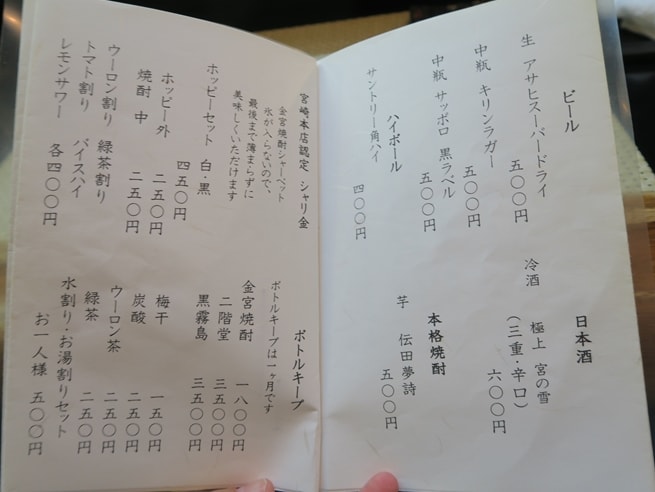 ビール
生 アサヒスーパードライ
五〇〇円
中瓶 キリンラガー
五〇〇円
中瓶 サッポロ 黒ラベル
五〇〇円
ハイボール
サントリー角ハイ
四〇〇円
日本酒
冷酒 極上 宮の雪
（三重・辛口）
六〇〇円
本格焼酎
芋 伝田夢詩
五〇〇円
宮崎本店認定 シャリ金
金宮焼酎シャーベット
氷が入らないので、
最後まで薄まらずに
美味しくいただけます
ホッピーセット 白・黒
四五〇円
ホッピー外 二五〇円
焼酎 中 二五〇円
ウーロン割り 緑茶割り
トマト割り バイスハイ
レモンサワー 各四〇〇円
ボトルキープ
ボトルキープは一ヶ月です
金宮焼酎 一八〇〇円
二階堂 三五〇〇円
黒霧島 三五〇〇円
梅干 一五〇円
炭酸 二五〇円
ウーロン茶 二五〇円
緑茶 二五〇円
水割り・お湯割りセット
お一人様 五〇〇円